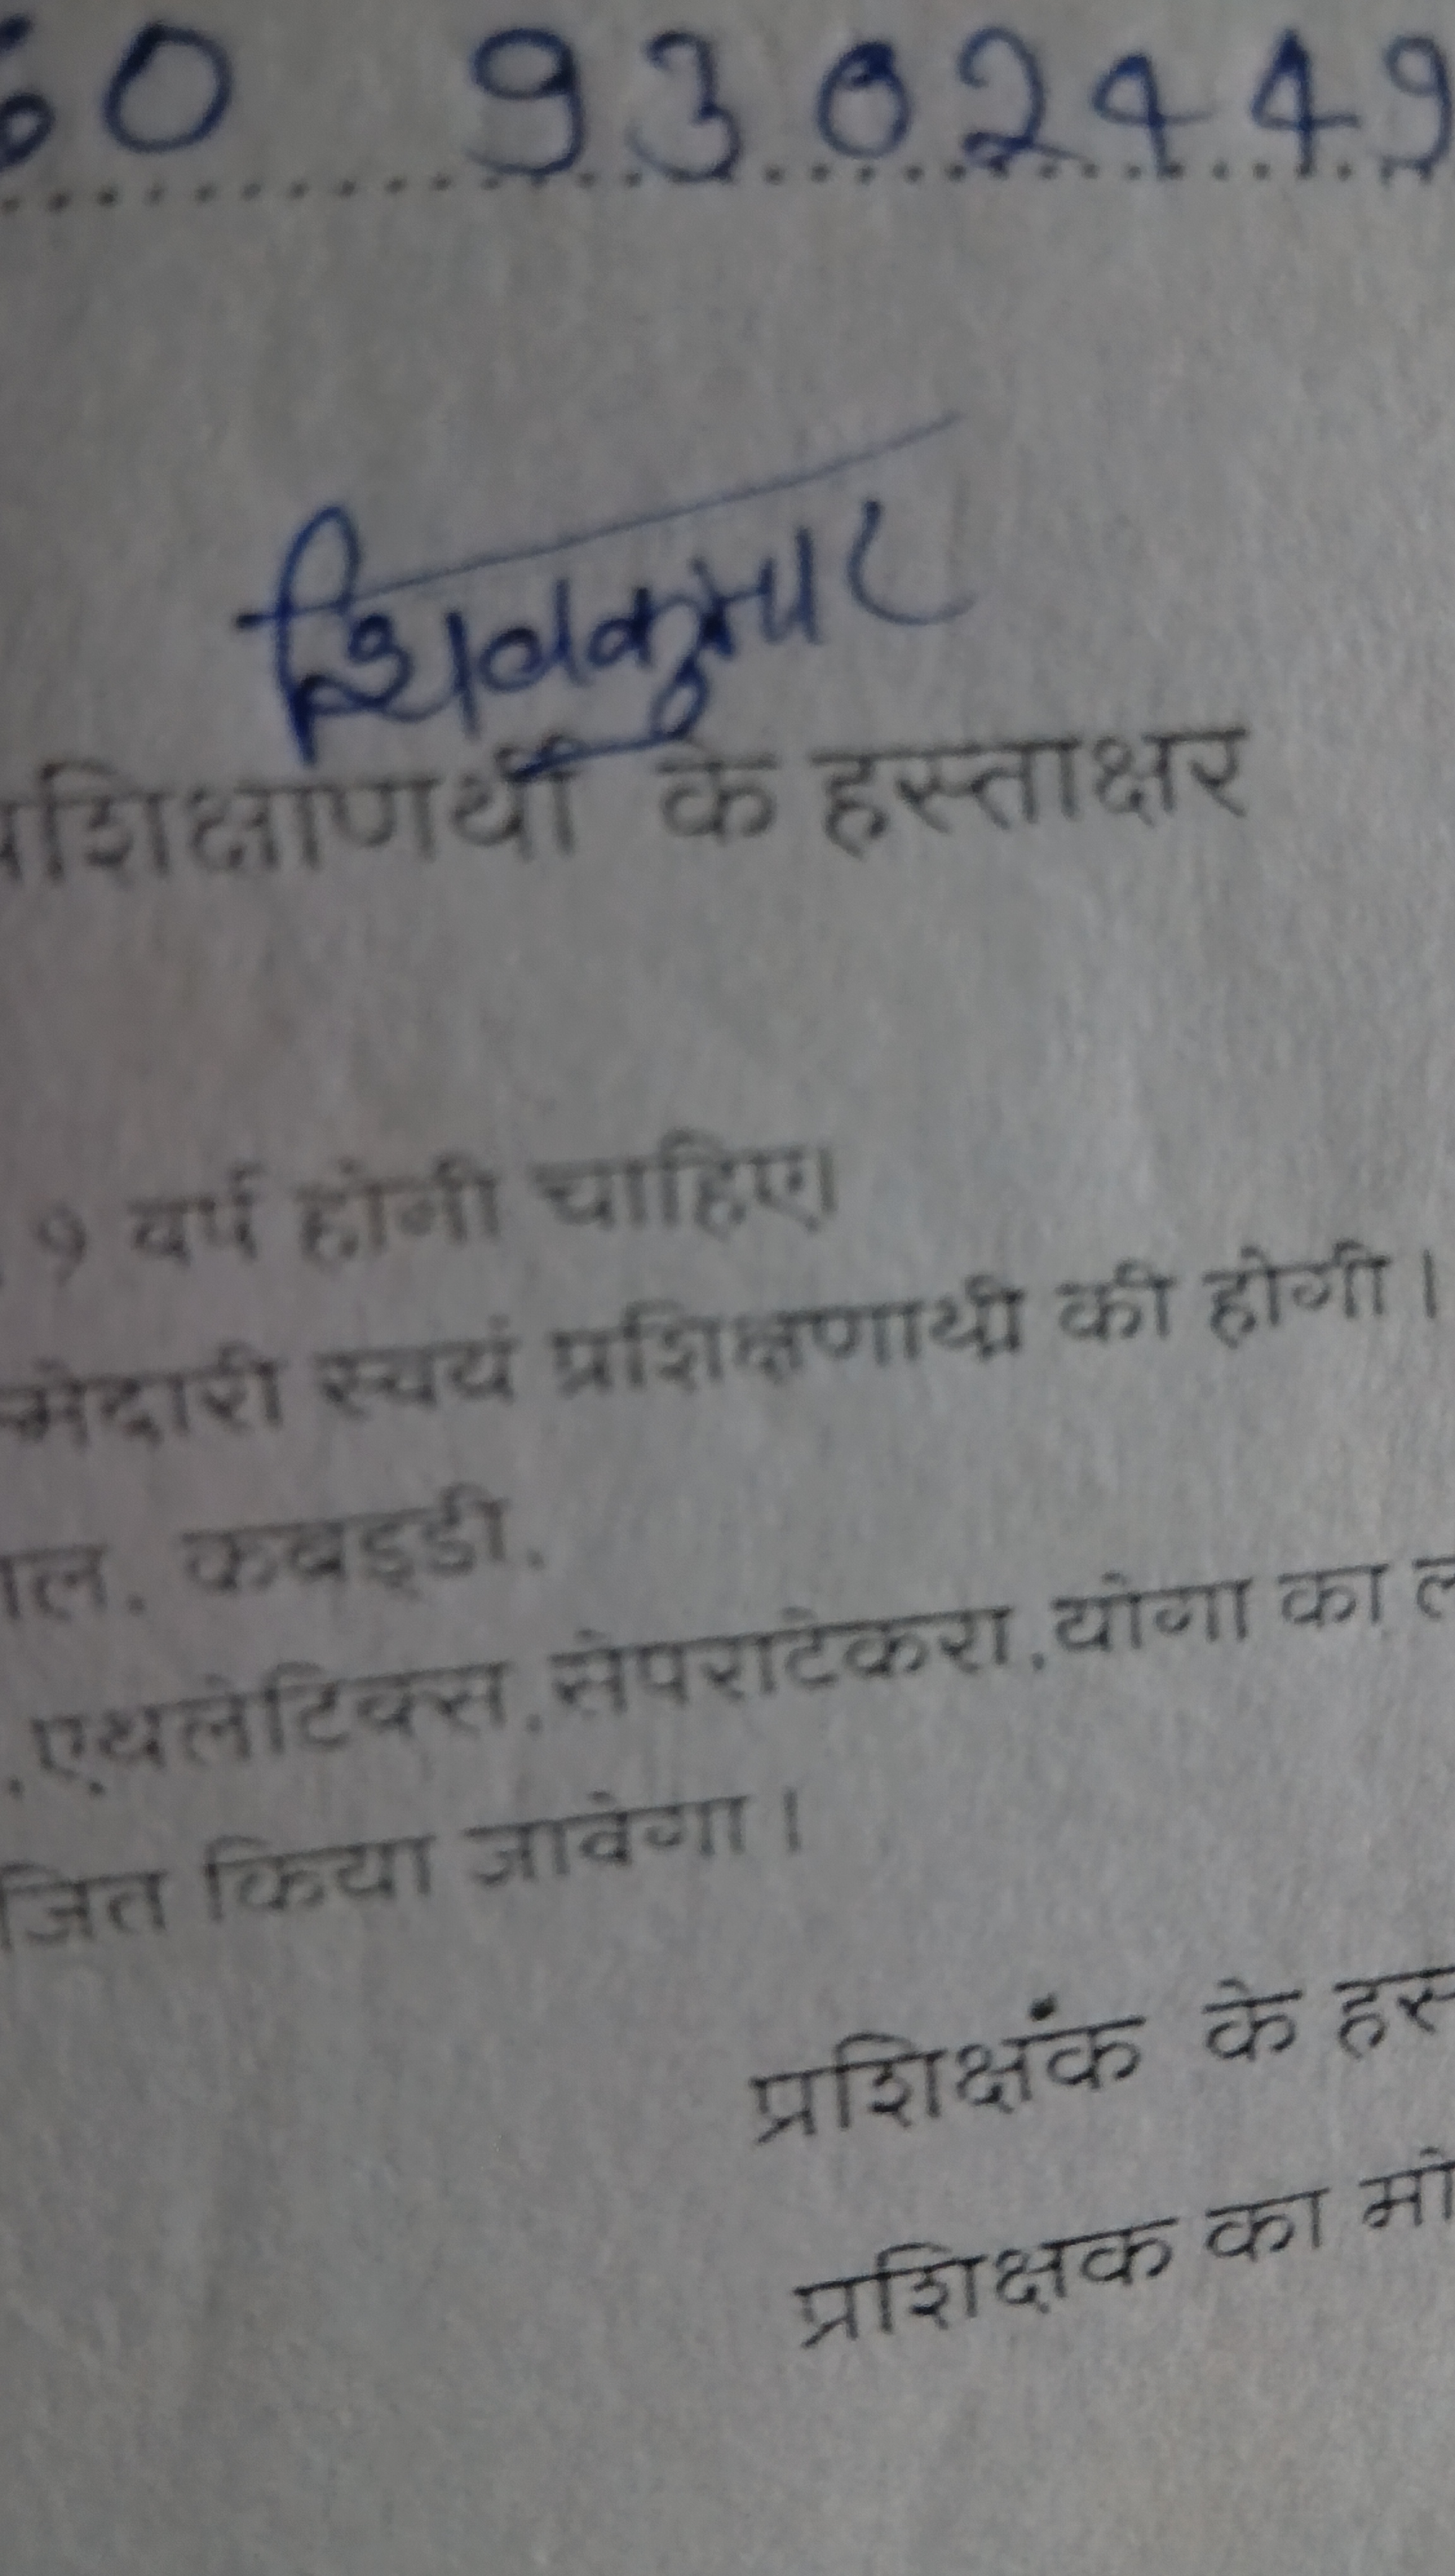 60 9302449
शिवकुमार
प्रशिक्षाणर्थी के हस्ताक्षर
9 वर्ष होनी चाहिए।
म्मेदारी स्वयं प्रशिक्षणार्थी की होगी।
ल, कबड्डी,
, एथलेटिक्स, सेपराटेकरा, योगा का
जित किया जावेगा।
प्रशिक्षंक के हस
प्रशिक्षक का मो